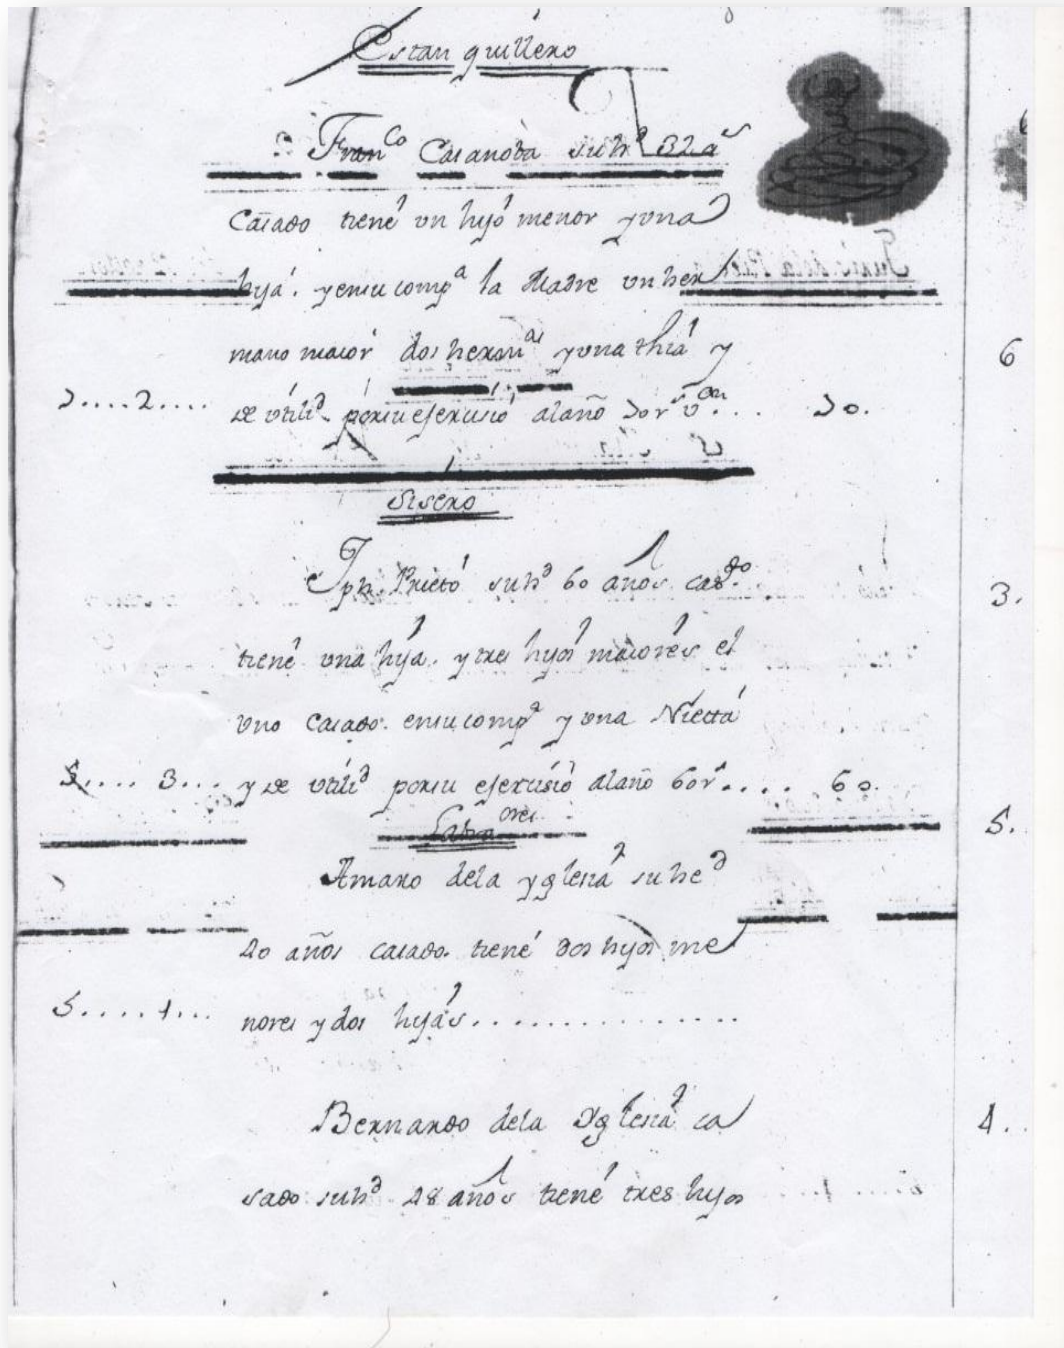 Estanquillero
Fran^co Casanoba su h^d 32 a^s
Casado tiené un hyó menor y una
hyá. y en su comp^a la Madre un her
mano maior dos herm^as y una thiá y 6
7....2.... de útili^d por su esercisió al año 70 r^s v^on... 70.
Sisero
Jph. Prietó su h^d 60 años cas^do. 3.
tiené una hyá. y tres hyos maiorés el
uno casado. en su comp^a y una Niettá
5.... 3... y de utili^d por su esercisió al año 60 r^s.... 60.
Labra^ores 5.
Amaro dela yglesiá su he^d
40 años casado. tiené dos hyos me
5....1... nores y dos hyás...............
Bernardo dela Yglesiá ca 4..
sado su h^d 48 años tiené tres hyos